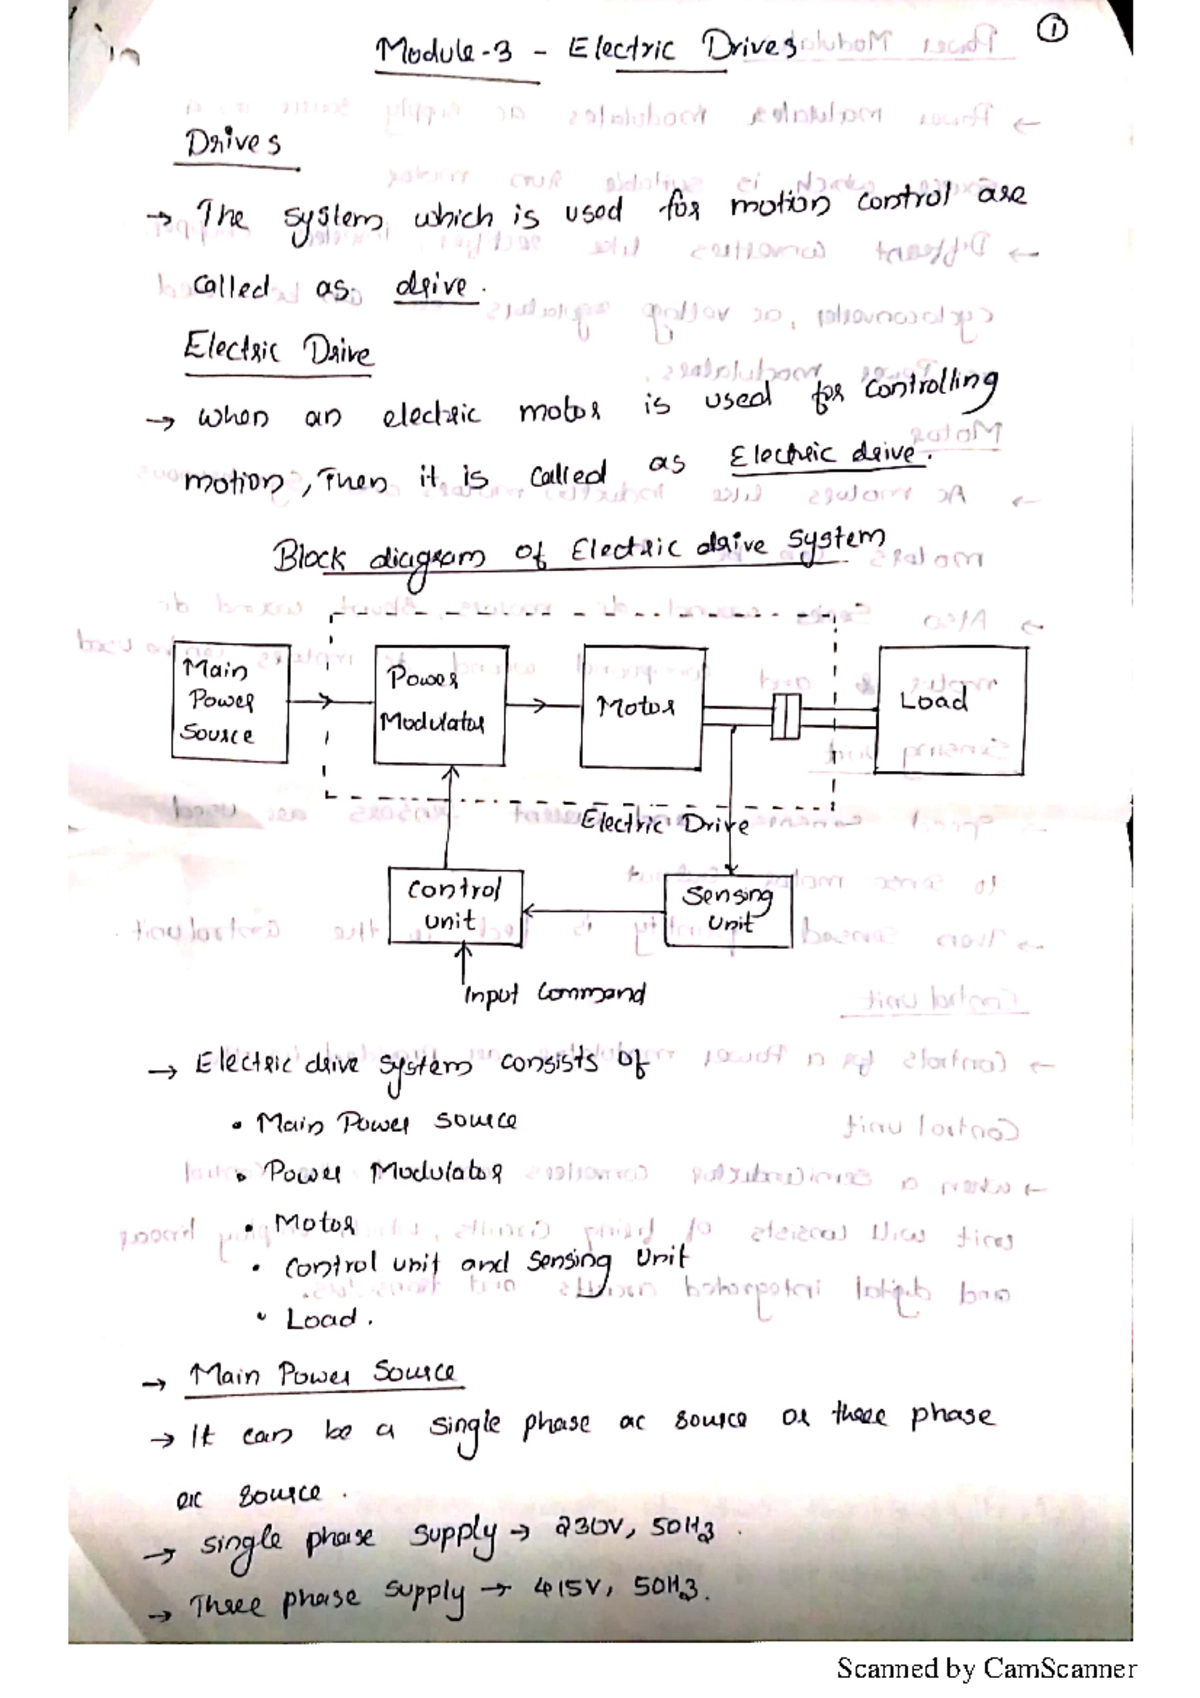 ①
Module-3 - Electric Drives
Drives
→ The system which is used for motion control are
called as drive.
Electric Drive
→ When an electric motor is used for controlling
motion, Then it is called as Electric drive.
Block diagram of Electric drive system
Main
Power
Source
Power
Modulator
Motor
Load
Electric Drive
Control
unit
Sensing
Unit
Input Command
→ Electric drive system consists of
• Main Power source
• Power Modulator
• Motor
• Control unit and Sensing Unit
• Load.
→ Main Power Source
→ It can be a single phase ac source or three phase
ac source.
→ Single phase supply → 230V, 50Hz.
→ Three phase supply → 415V, 50Hz.
Scanned by CamScanner